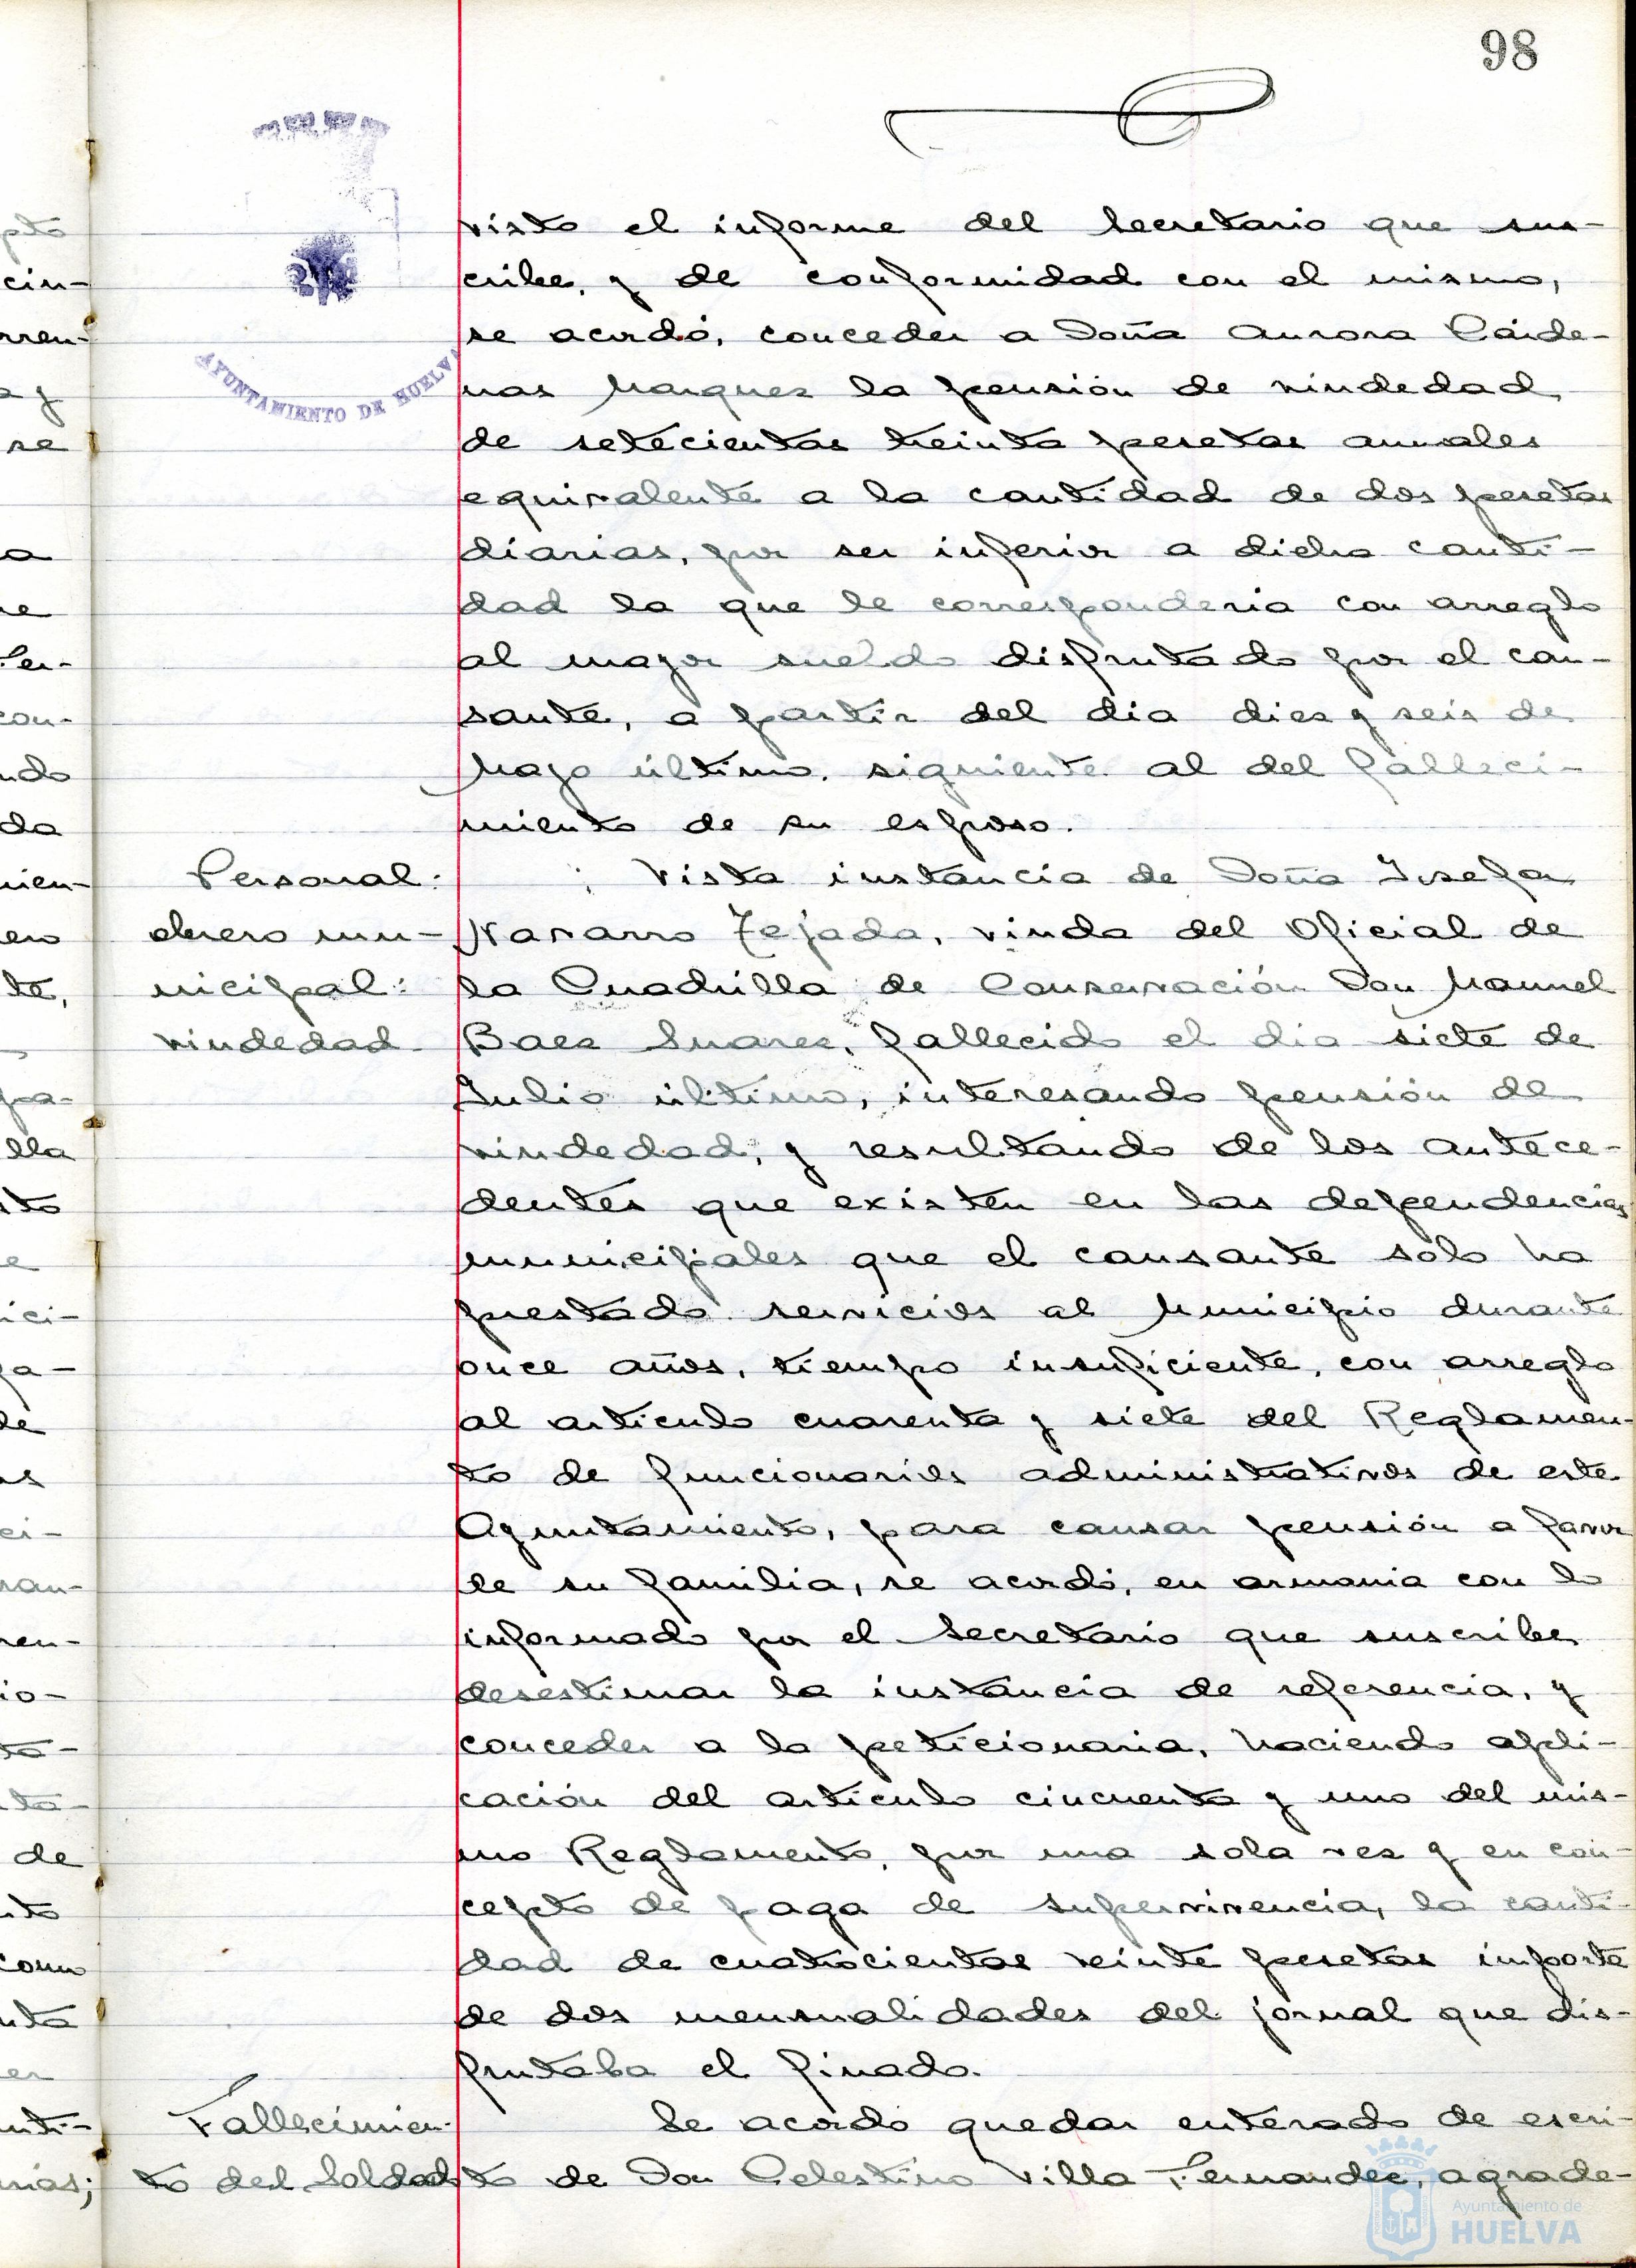 98
AYUNTAMIENTO DE HUELVA
visto el informe del Secretario que sus-
cribe, y de conformidad con el mismo,
se acordó, conceder a Doña Aurora Cárde-
nas Marquez la pensión de viudedad
de setecientas treinta pesetas anuales
equivalente a la cantidad de dos pesetas
diarias, por ser inferior a dicha canti-
dad la que le corresponderia con arreglo
al mayor sueldo disfrutado por el cau-
sante, a partir del dia diez y seis de
Mayo último, siguiente al del falleci-
miento de su esposo.
Personal:
obrero mu-
nicipal:
viudedad.
Vista instancia de Doña Josefa
Navarro Tejada, viuda del Oficial de
la Cuadrilla de Conservación Don Manuel
Baez Suarez, fallecido el dia siete de
Julio último, interesando pensión de
viudedad; y resultando de los antece-
dentes que existen en las dependencias
municipales que el causante solo ha
prestado servicios al Municipio durante
once años, tiempo insuficiente, con arreglo
al articulo cuarenta y siete del Reglamen-
to de funcionarios administrativos de este
Ayuntamiento, para causar pensión a favor
de su familia, se acordó, en armonia con lo
informado por el Secretario que suscribe,
desestimar la instancia de referencia, y
conceder a la peticionaria, haciendo apli-
cación del articulo cincuenta y uno del mis-
mo Reglamento, por una sola vez y en con-
cepto de paga de supervivencia, la canti-
dad de cuatrocientas veinte pesetas importe
de dos mensualidades del jornal que dis-
frutaba el finado.
Fallecimien-
to del Soldado
Se acordó quedar enterado de escri-
to de Don Celestino Villa Fernandez, agrade-
Ayuntamiento de
HUELVA